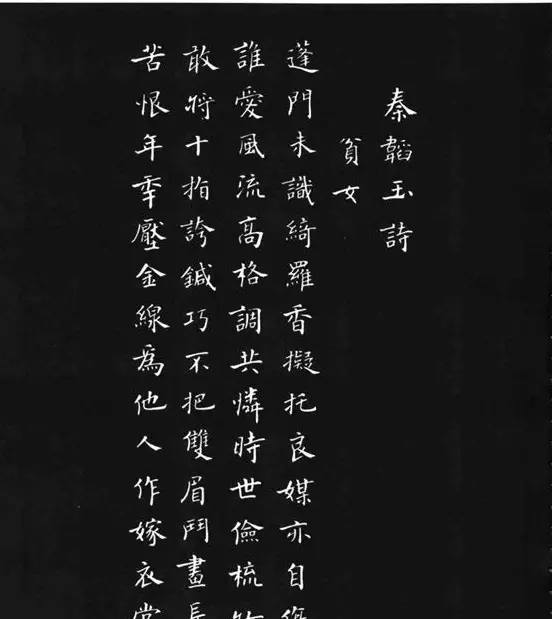 秦韜玉詩
貧女
蓬門未識綺羅香擬托良媒亦自
誰愛風流高格調共憐時世儉梳
敢將十指誇鍼巧不把雙眉鬥畫長
苦恨年年壓金線為他人作嫁衣裳